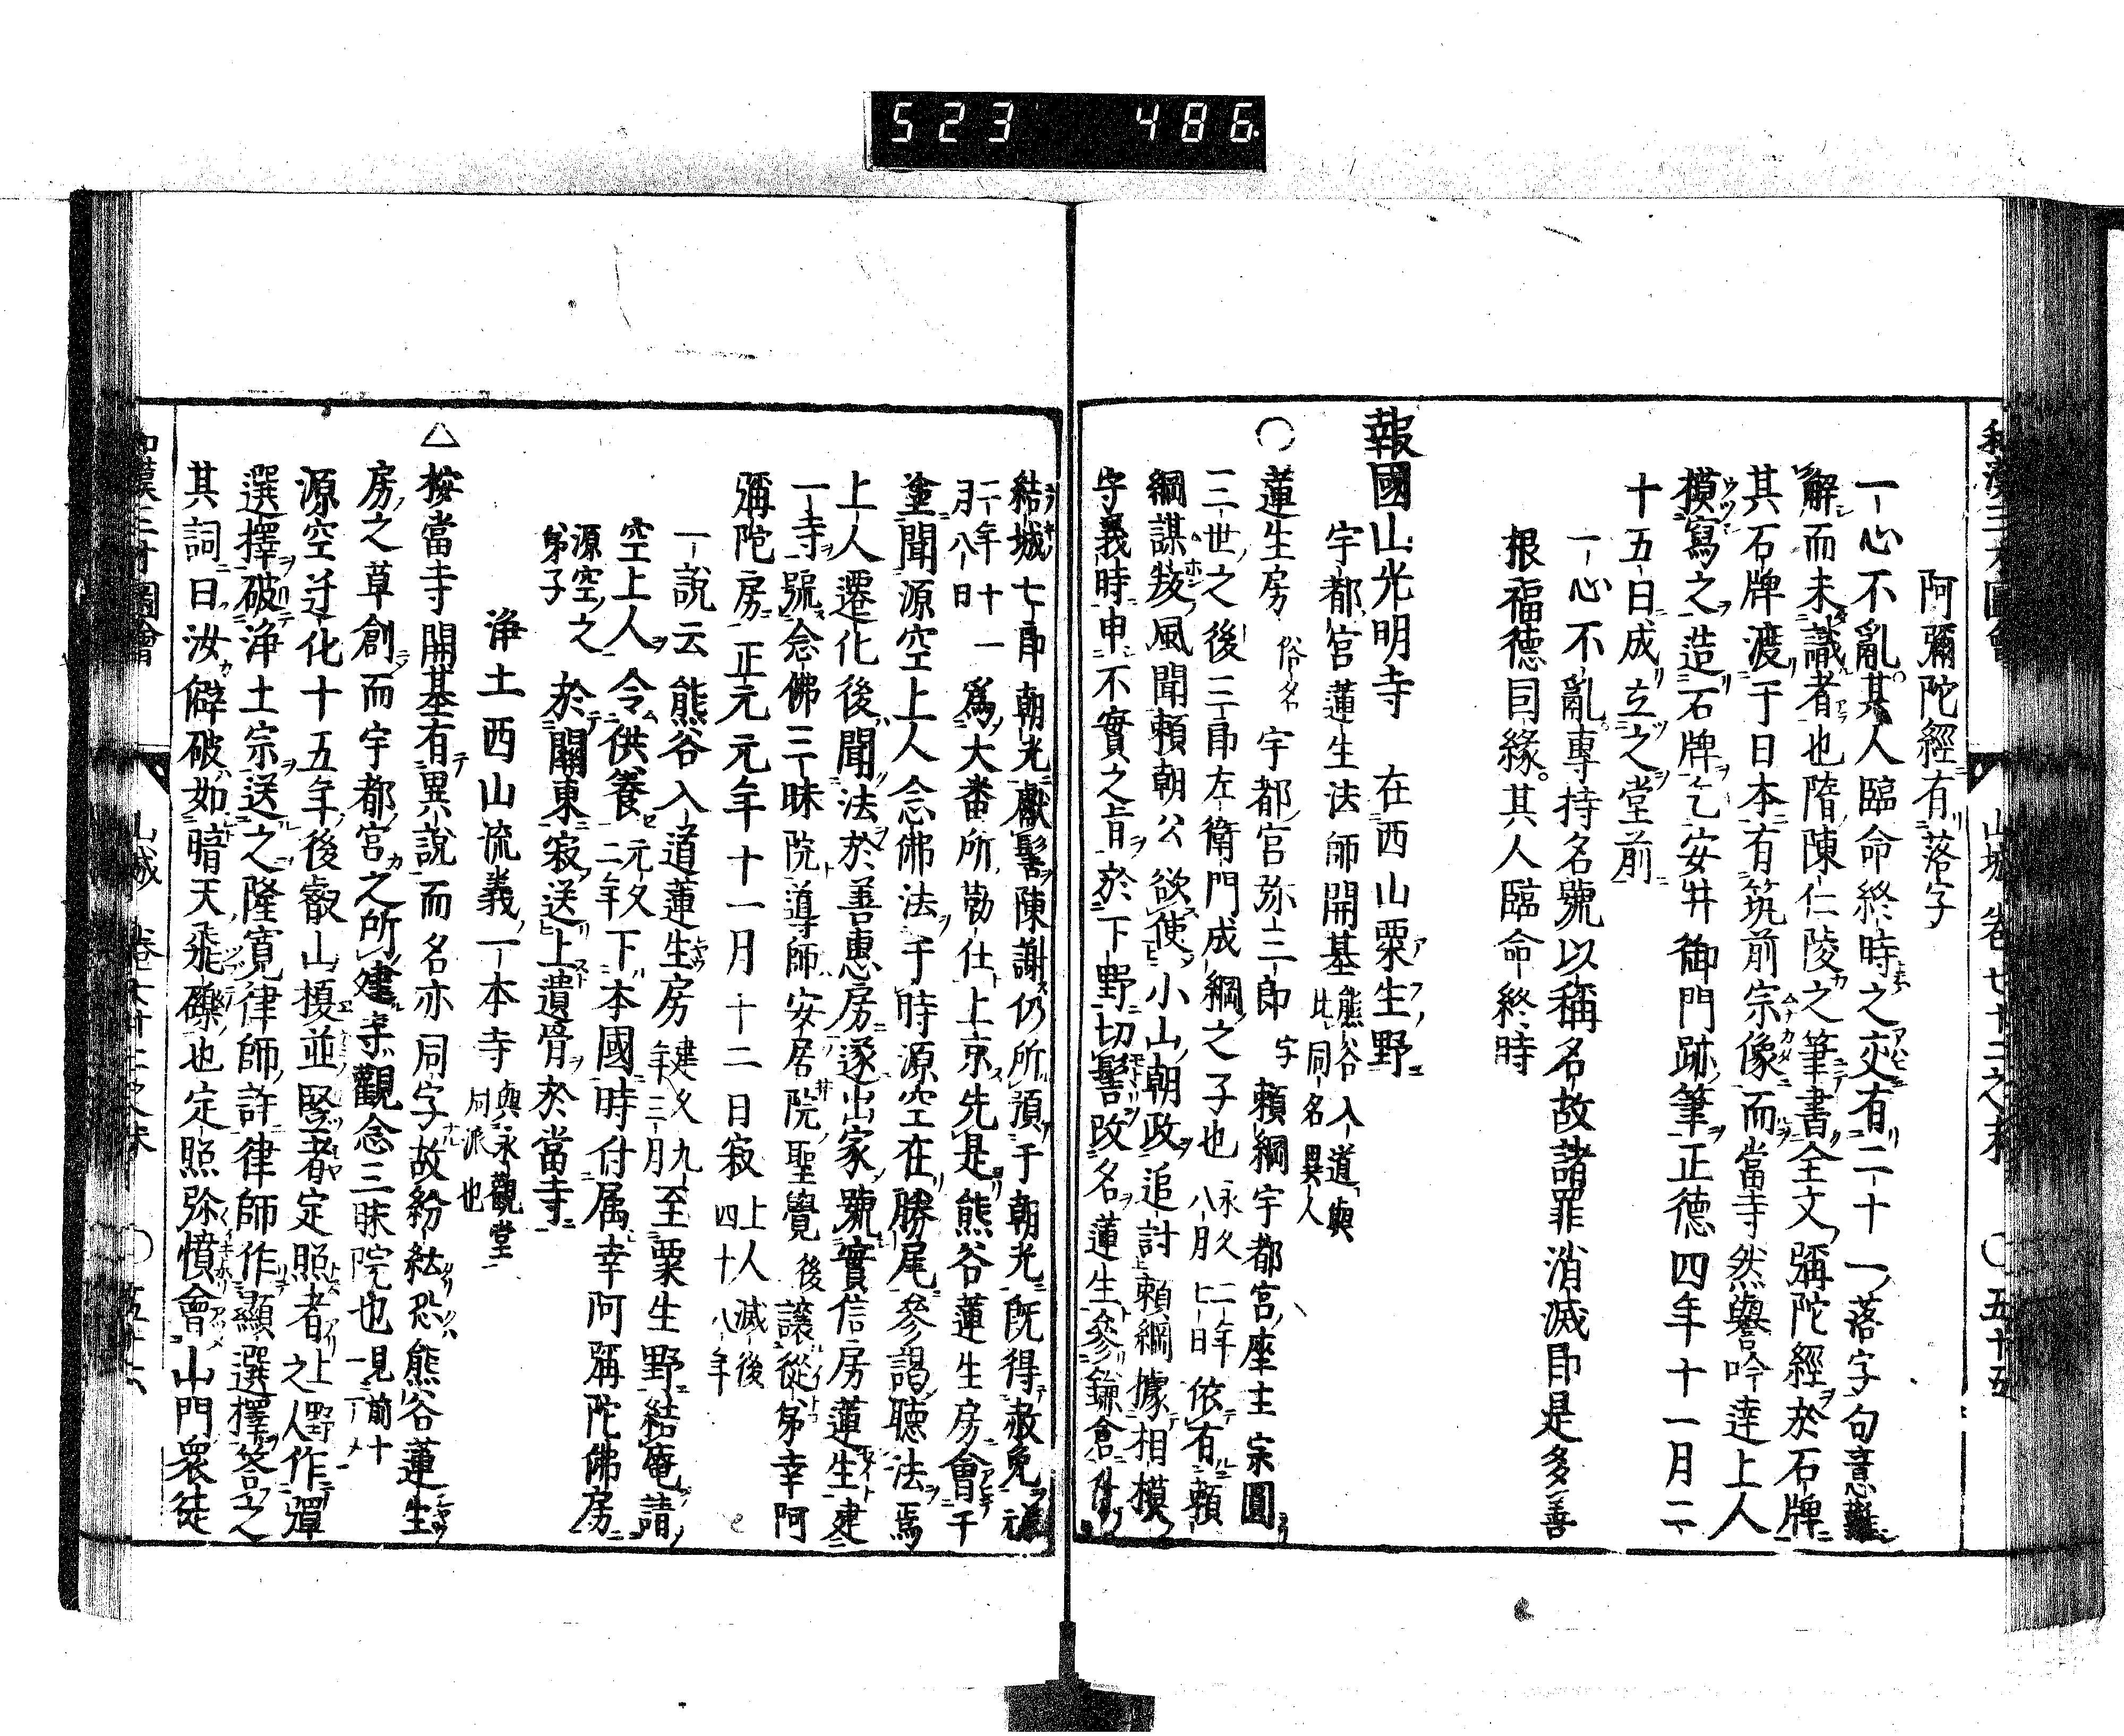 523 486
和漢三才圖會 山城 卷七十二之末 ○五十五
阿彌陀經有落字
一心不亂其人臨命終時之交有二十一落字句意難
解而未識者也隋陳仁陵之筆書全文彌陀經於石牌
其石牌渡于日本有筑前宗像而當寺然譽吟達上人
摸寫之造石牌乞安井御門跡筆正德四年十一月二
十五日成立之堂前
一心不亂專持名號以稱名故諸罪消滅即是多善
根福德因緣其人臨命終時
報國山光明寺 在西山粟生野
宇都宮蓮生法師開基 熊谷入道與此同名異人
○蓮生房 俗名宇都宮弥三郎字頼綱宇都宮座主宗圓
三世之後三郎左衛門成綱之子也 永久二年八月七日 依有頼
綱謀叛風聞頼朝公欲使小山朝政追討頼綱據相模
守義時申不實之旨於下野切髻改名蓮生參鎌倉付
結城七郎朝光獻髻陳謝仍所預于朝光既得赦免 元
二年十一月八日 爲大番所勤仕上京先是熊谷蓮生房會干
塗聞源空上人念佛法于時源空在勝尾參謁聽法焉
上人遷化後聞法於善惠房遂出家號實信房蓮生建
一寺號念佛三昧院導師安居院聖覺後讓從弟幸阿
彌陀房正元元年十一月十二日寂 上人滅後四十八年
一說云熊谷入道蓮生房 建久九年三月 至粟生野結庵請
空上人令供養 元久二年 下本國時付属幸阿彌陀佛房
源空之弟子 於關東寂送上遺骨於當寺
淨土西山流義一本寺 與永觀堂同派也
△按當寺開基有異說而名亦同字故紛紜恐熊谷蓮生
房之草創而宇都宮之所建寺觀念三昧院也 見前十
源空迁化十五年後叡山榎並竪者定照者 上野之人 作彈
選擇破淨土宗送之隆寛律師許律師作顯選擇答之
其詞曰汝僻破如暗天飛礫也定照弥憤會山門衆徒
和漢三才圖會 山城 卷七十二之末 ○五十六